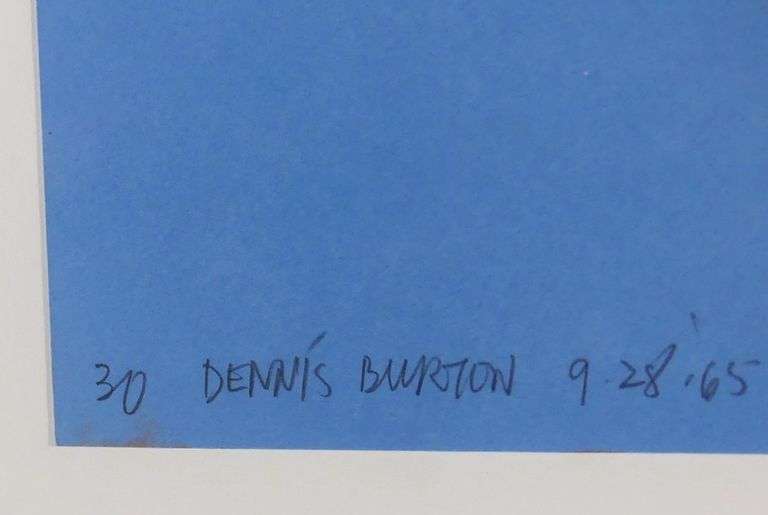 30 DENNIS BURTON 9.28.'65